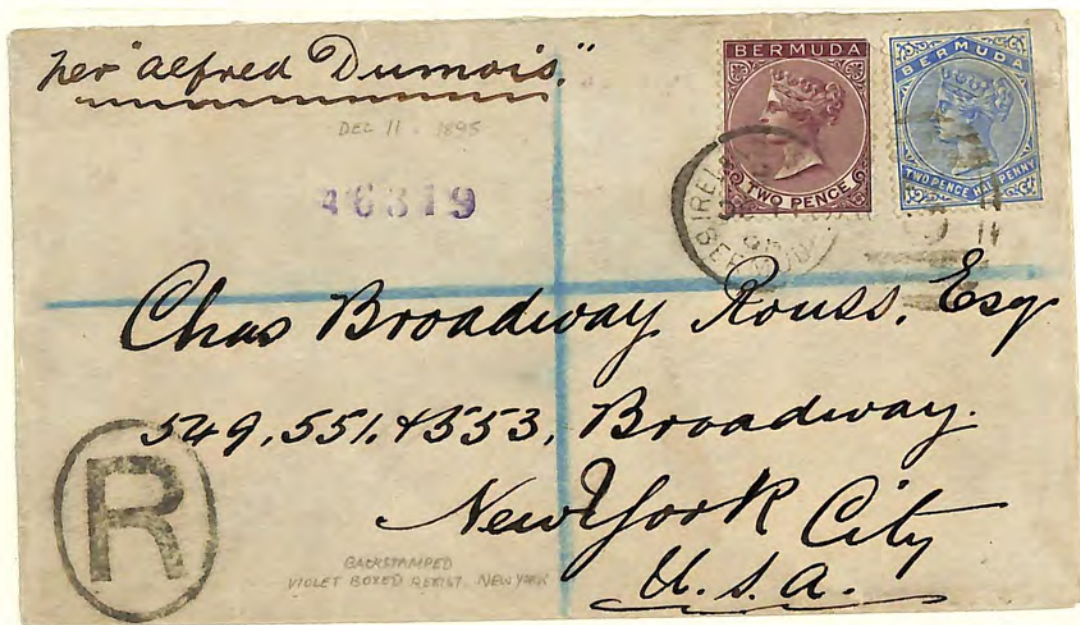 per "Alfred Dumois."
DEC 11. 1895
46319
BERMUDA
TWO PENCE
BERMUDA
TWO PENCE HALFPENNY
BERMUDA
14
Chas Broadway Rouss, Esq
549, 551, & 553, Broadway.
New York City
U.S.A.
R
BACKSTAMPED
VIOLET BOXED REGIST. NEW YORK